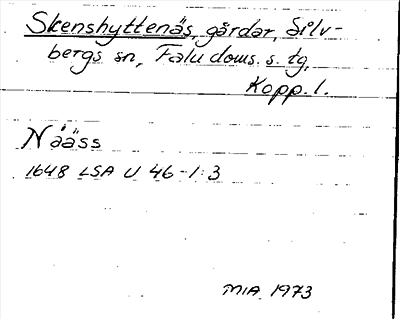 Skenshyttenäs, gårdar, Silv-
bergs sn, Falu doms. s. tg,
Kopp. l.
Nååss
1648 LSA U 46-1:3
MIA 1973